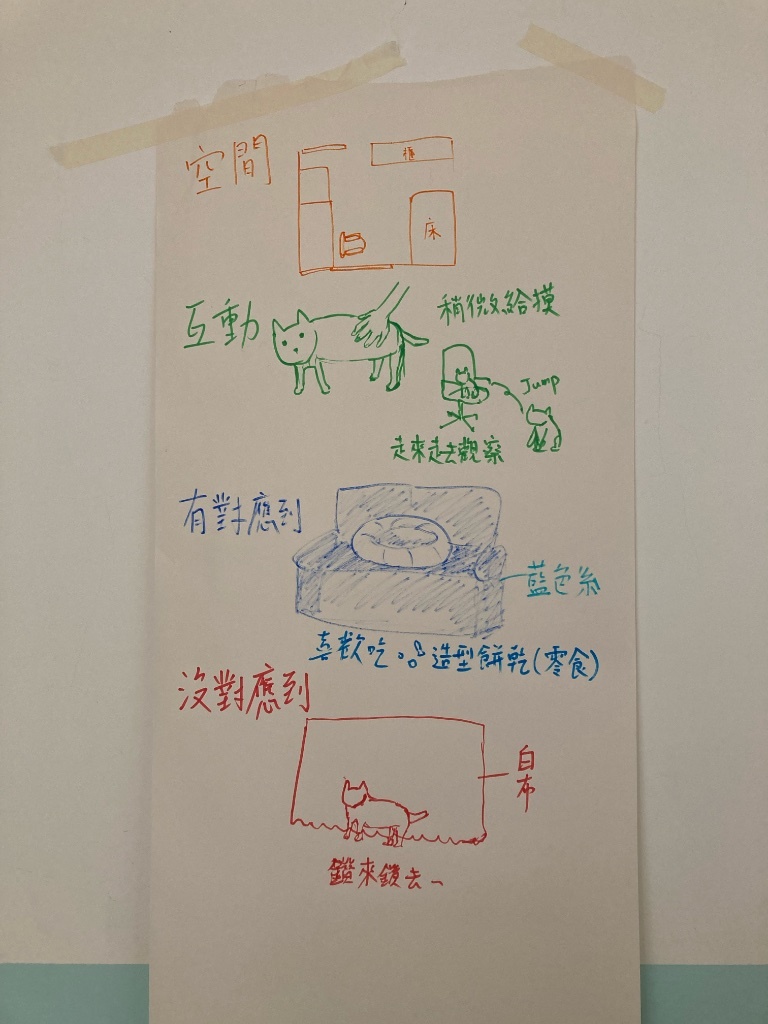 空間
櫃
床
互動
稍微給摸
Jump
走來走去觀察
有對應到
藍色系
喜歡吃 造型餅乾(零食)
沒對應到
白布
鑽來鑽去~